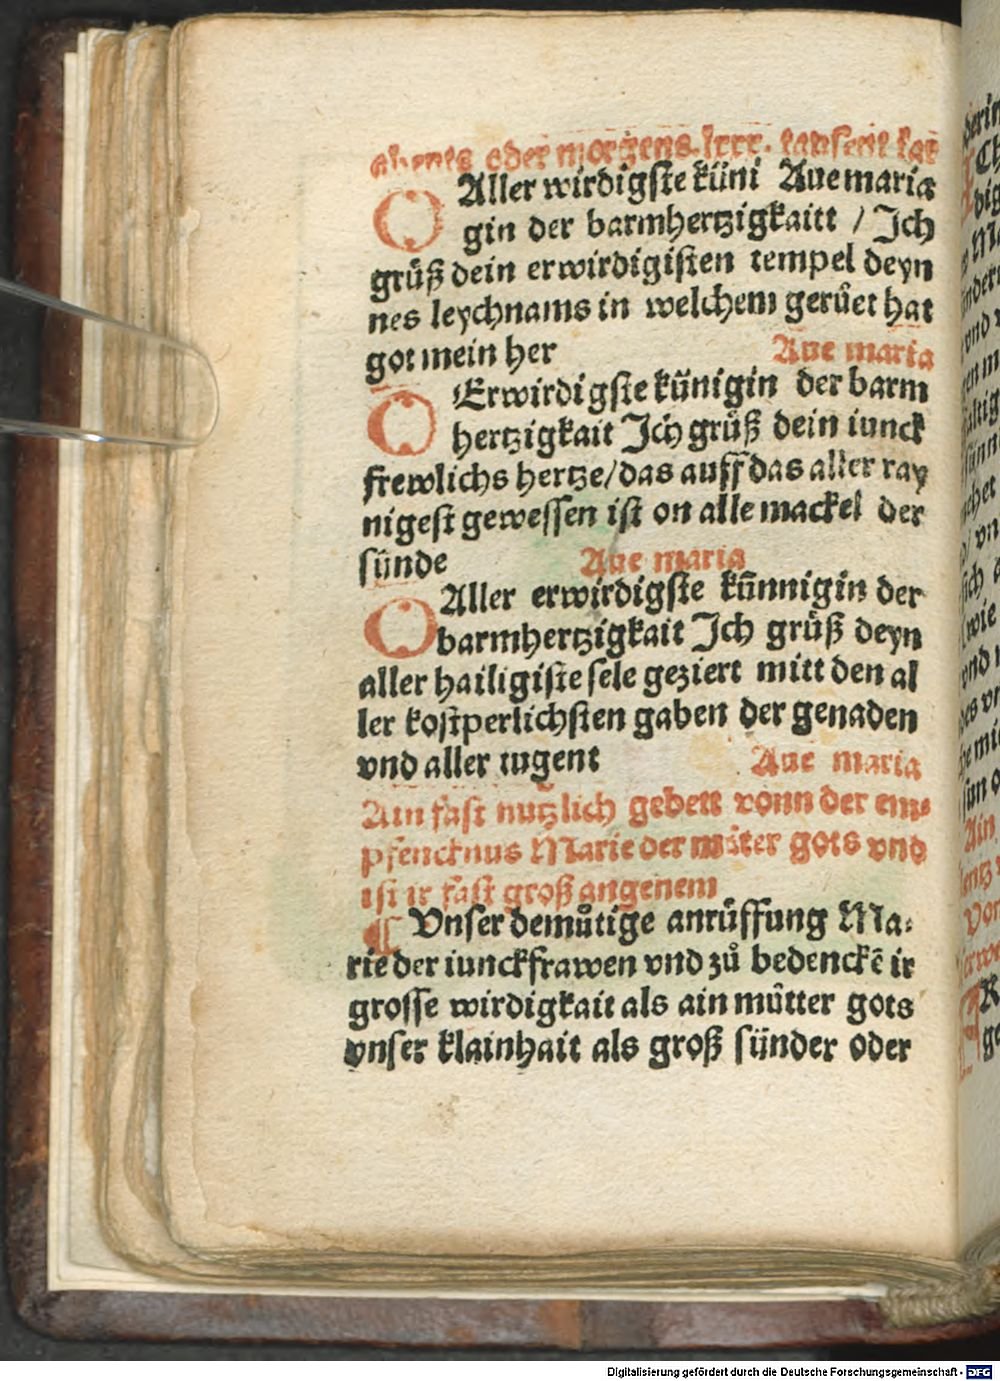 abents oder morgens. lxxx. tausent tar
O Aller wirdigste küni Aue maria
gin der barmhertzigkaitt / Jch
grüß dein erwirdigisten tempel deyn
nes leychnams in welchem gerůet hat
got mein her Aue maria
O Erwirdigste künigin der barm
hertzigkait Jch grüß dein iunck
frewlichs hertze/das auff das aller ray
nigest gewessen ist on alle mackel der
sünde Aue maria
O Aller erwirdigste künnigin der
barmhertzigkait Jch grüß deyn
aller hailigiste sele geziert mitt den al
ler kostperlichsten gaben der genaden
vnd aller tugent Aue maria
Ain fast nutzlich gebett vonn der em⸗
pfencknus Marie der můter gots vnd
ist ir fast groß angenem
¶ Vnser demůtige anrüffung Ma⸗
rie der iunckfrawen vnd zů bedenckē ir
grosse wirdigkait als ain můtter gots
vnser klainhait als groß sünder oder
Digitalisierung gefördert durch die Deutsche Forschungsgemeinschaft - DFG